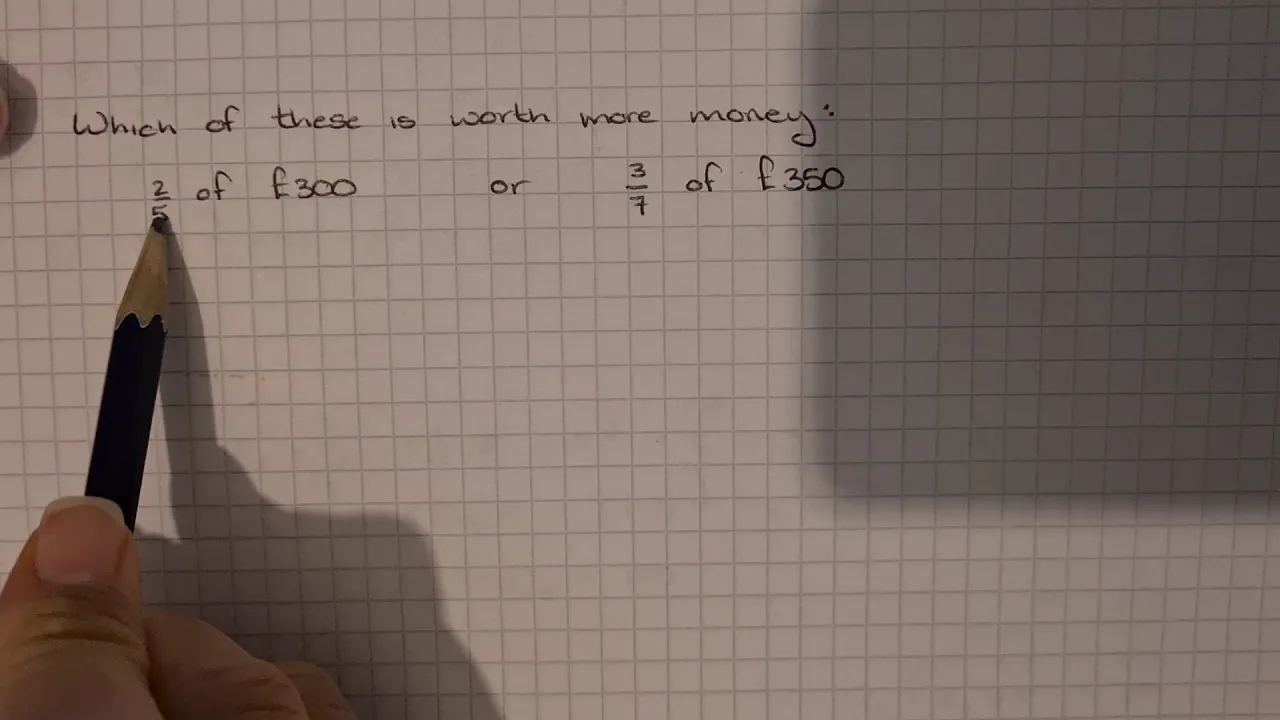 Which of these is worth more money:
2/5 of £300 or 3/7 of £350